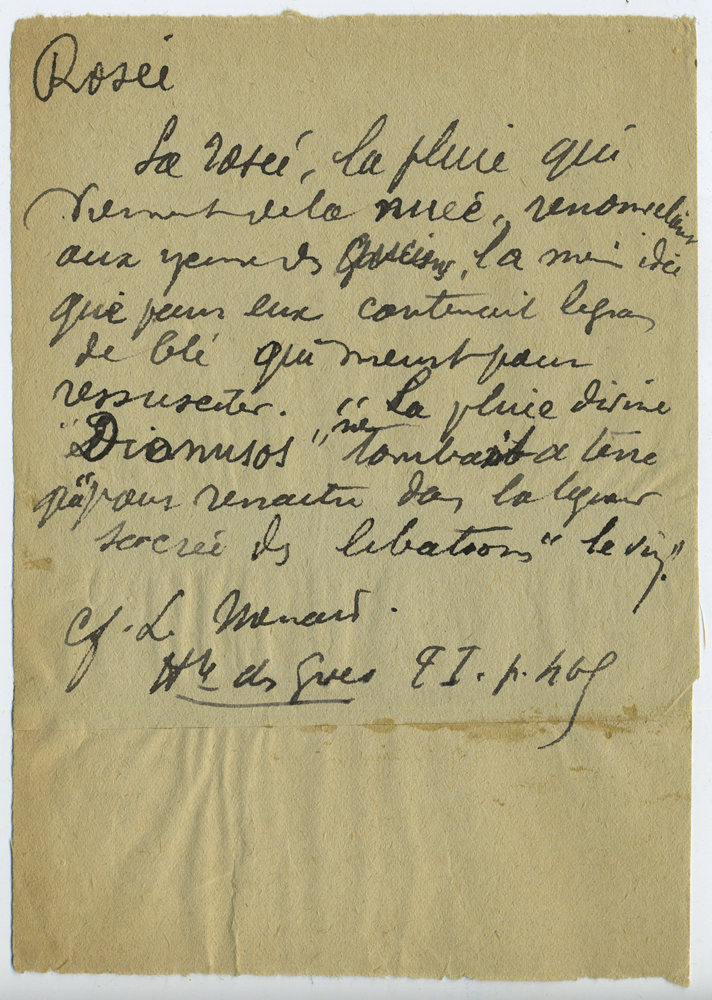 Rosée
La rosée, la pluie qui
viennent de la nuée, renouvelaient
aux yeux des Grecs, la même idée
que pour eux contenait le grain
de blé qui meurt pour
ressusciter. "La pluie divine
"Dionusos" ne tombait à terre
que pour renaitre dans la liqueur
sacrée des libations "le vin"
cf. L. Menard.
Hre des Grecs T I. p.